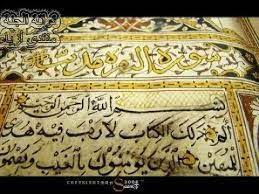 سورة البقرة مدنية
بسم الله الرحمن الرحيم
الم ذلك الكتاب لا ريب فيه هدى
للمتقين الذين يؤمنون بالغيب ويقيمون
COPYRIGHT